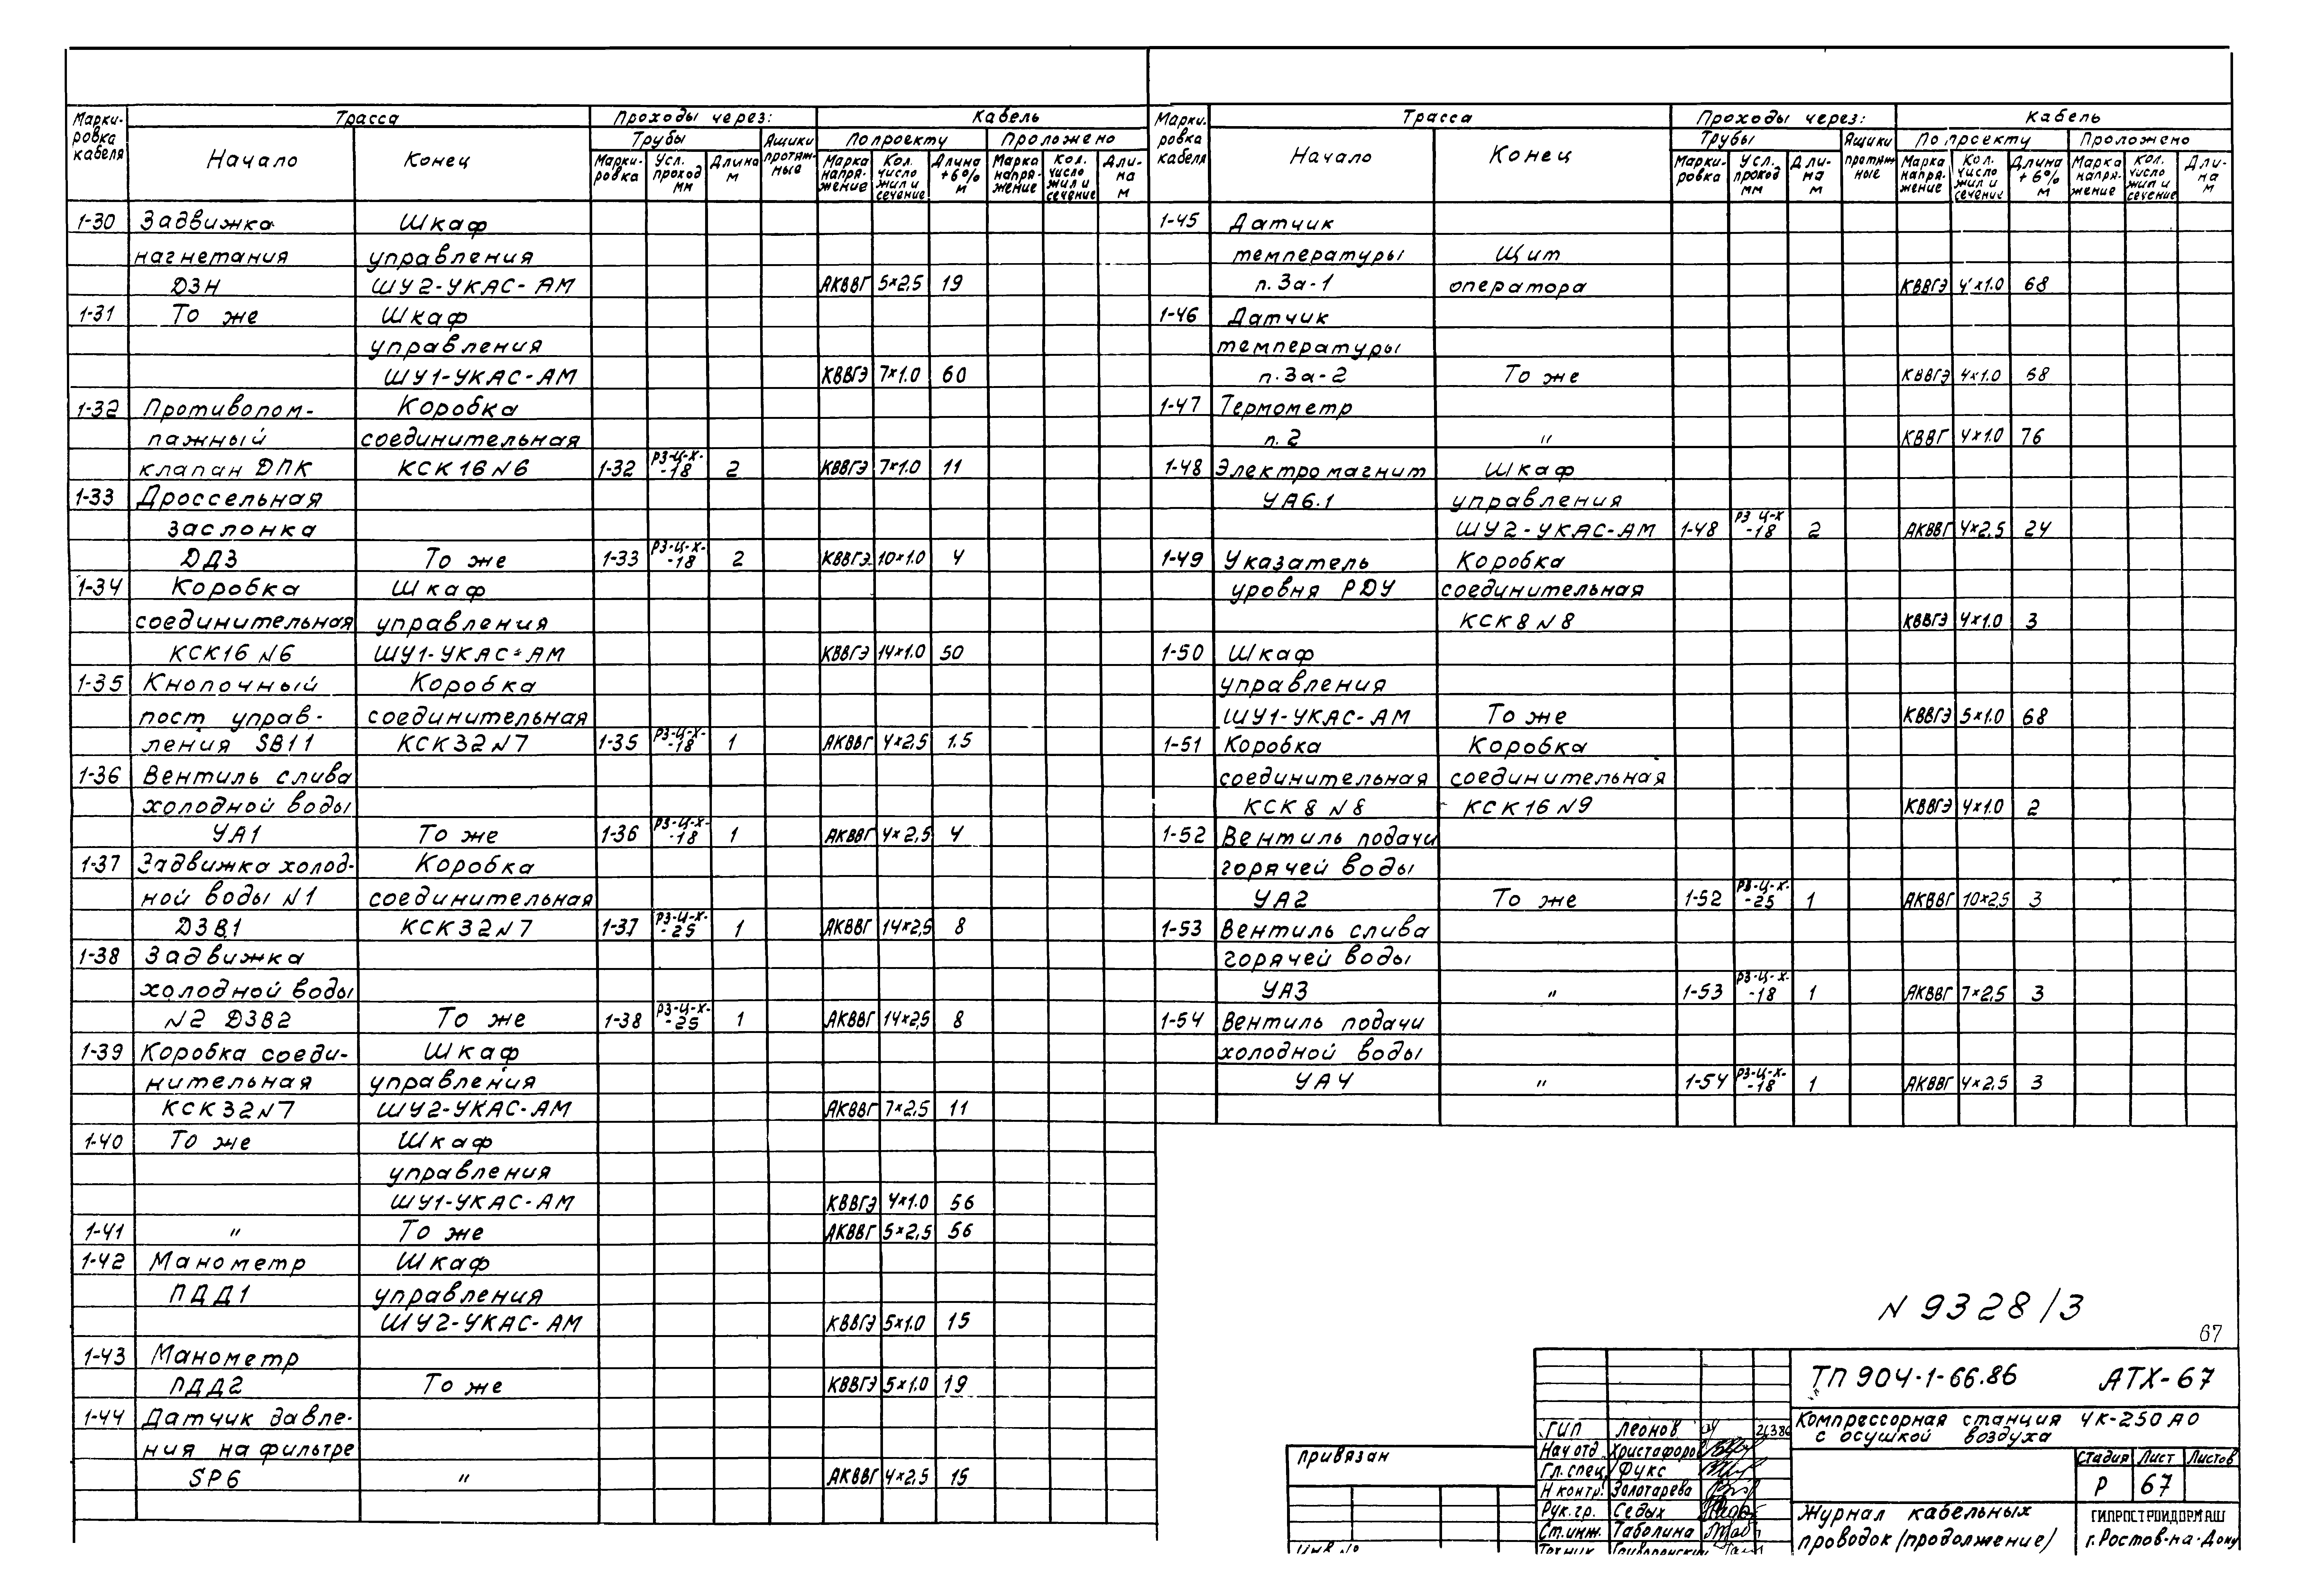 Марки-ровка кабеля | Трасса | Проходы через: | Кабель
Трубы | Ящики протяж-ные | По проекту | Проложено
Начало | Конец | Марки-ровка | Усл. проход мм | Длина м | Марка напря-жение | Кол. число жил и сечение | Длина +6% м | Марка напря-жение | Кол. число жил и сечение | Дли-на м
1-30 Задвижка Шкаф
нагнетания управления
ДЗН ШУ2-УКАС-АМ АКВВГ 5×2,5 19
1-31 То же Шкаф
управления
ШУ1-УКАС-АМ КВВГЭ 7×1.0 60
1-32 Противопом- Коробка
пажный соединительная
клапан ДПК КСК16N6 1-32 РЗ-Ц-Х-18 2 КВВГЭ 7×1.0 11
1-33 Дроссельная
заслонка
ДДЗ То же 1-33 РЗ-Ц-Х-18 2 КВВГЭ 10×1.0 4
1-34 Коробка Шкаф
соединительная управления
КСК16 N6 ШУ1-УКАС-АМ КВВГЭ 14×1.0 50
1-35 Кнопочный Коробка
пост управ- соединительная
ления SB11 КСК32N7 1-35 РЗ-Ц-Х-18 1 АКВВГ 4×2,5 1.5
1-36 Вентиль слива
холодной воды
УА1 То же 1-36 РЗ-Ц-Х-18 1 АКВВГ 4×2,5 4
1-37 Задвижка холод- Коробка
ной воды N1 соединительная
ДЗВ1 КСК32N7 1-37 РЗ-Ц-Х-25 1 АКВВГ 14×2,5 8
1-38 Задвижка
холодной воды
N2 ДЗВ2 То же 1-38 РЗ-Ц-Х-25 1 АКВВГ 14×2,5 8
1-39 Коробка соеди- Шкаф
нительная управления
КСК32N7 ШУ2-УКАС-АМ АКВВГ 7×2,5 11
1-40 То же Шкаф
управления
ШУ1-УКАС-АМ КВВГЭ 4×1.0 56
1-41 " То же АКВВГ 5×2,5 56
1-42 Манометр Шкаф
ПДД1 управления
ШУ2-УКАС-АМ КВВГЭ 5×1.0 15
1-43 Манометр
ПДД2 То же КВВГЭ 5×1.0 19
1-44 Датчик давле-
ния на фильтре
SP6 " АКВВГ 4×2,5 15
Марки-ровка кабеля | Трасса | Проходы через: | Кабель
Трубы | Ящики протяж-ные | По проекту | Проложено
Начало | Конец | Марки-ровка | Усл. проход мм | Дли-на м | Марка напря-жение | Кол. число жил и сечение | Длина +6% м | Марка напря-жение | Кол. число жил и сечение | Дли-на м
1-45 Датчик
температуры Щит
п. 3а-1 оператора КВВГЭ 4×1.0 68
1-46 Датчик
температуры
п. 3а-2 То же КВВГЭ 4×1.0 68
1-47 Термометр
п. 2 " КВВГ 4×1.0 76
1-48 Электромагнит Шкаф
УА6.1 управления
ШУ2-УКАС-АМ 1-48 РЗ Ц-Х-18 2 АКВВГ 4×2,5 24
1-49 Указатель Коробка
уровня РДУ соединительная
КСК8N8 КВВГЭ 4×1.0 3
1-50 Шкаф
управления
ШУ1-УКАС-АМ То же КВВГЭ 5×1.0 68
1-51 Коробка Коробка
соединительная соединительная
КСК8N8 КСК16N9 КВВГЭ 4×1.0 2
1-52 Вентиль подачи
горячей воды
УА2 То же 1-52 РЗ-Ц-Х-25 1 АКВВГ 10×2,5 3
1-53 Вентиль слива
горячей воды
УА3 " 1-53 РЗ-Ц-Х-18 1 АКВВГ 7×2,5 3
1-54 Вентиль подачи
холодной воды
УА4 " 1-54 РЗ-Ц-Х-18 1 АКВВГ 4×2,5 3
N 9328/3
67
ТП 904-1-66.86 АТХ-67
Компрессорная станция 4К-250АО
с осушкой воздуха
Привязан
ГИП Леонов
Нач отд Христофоров
Гл. спец Фукс
Н контр. Золотарева
Рук. гр. Седых
Ст. инж. Таболина
Стадия Лист Листов
Р 67
Журнал кабельных
проводок (продолжение)
ГИПРОСТРОЙДОРМАШ
г. Ростов-на-Дону